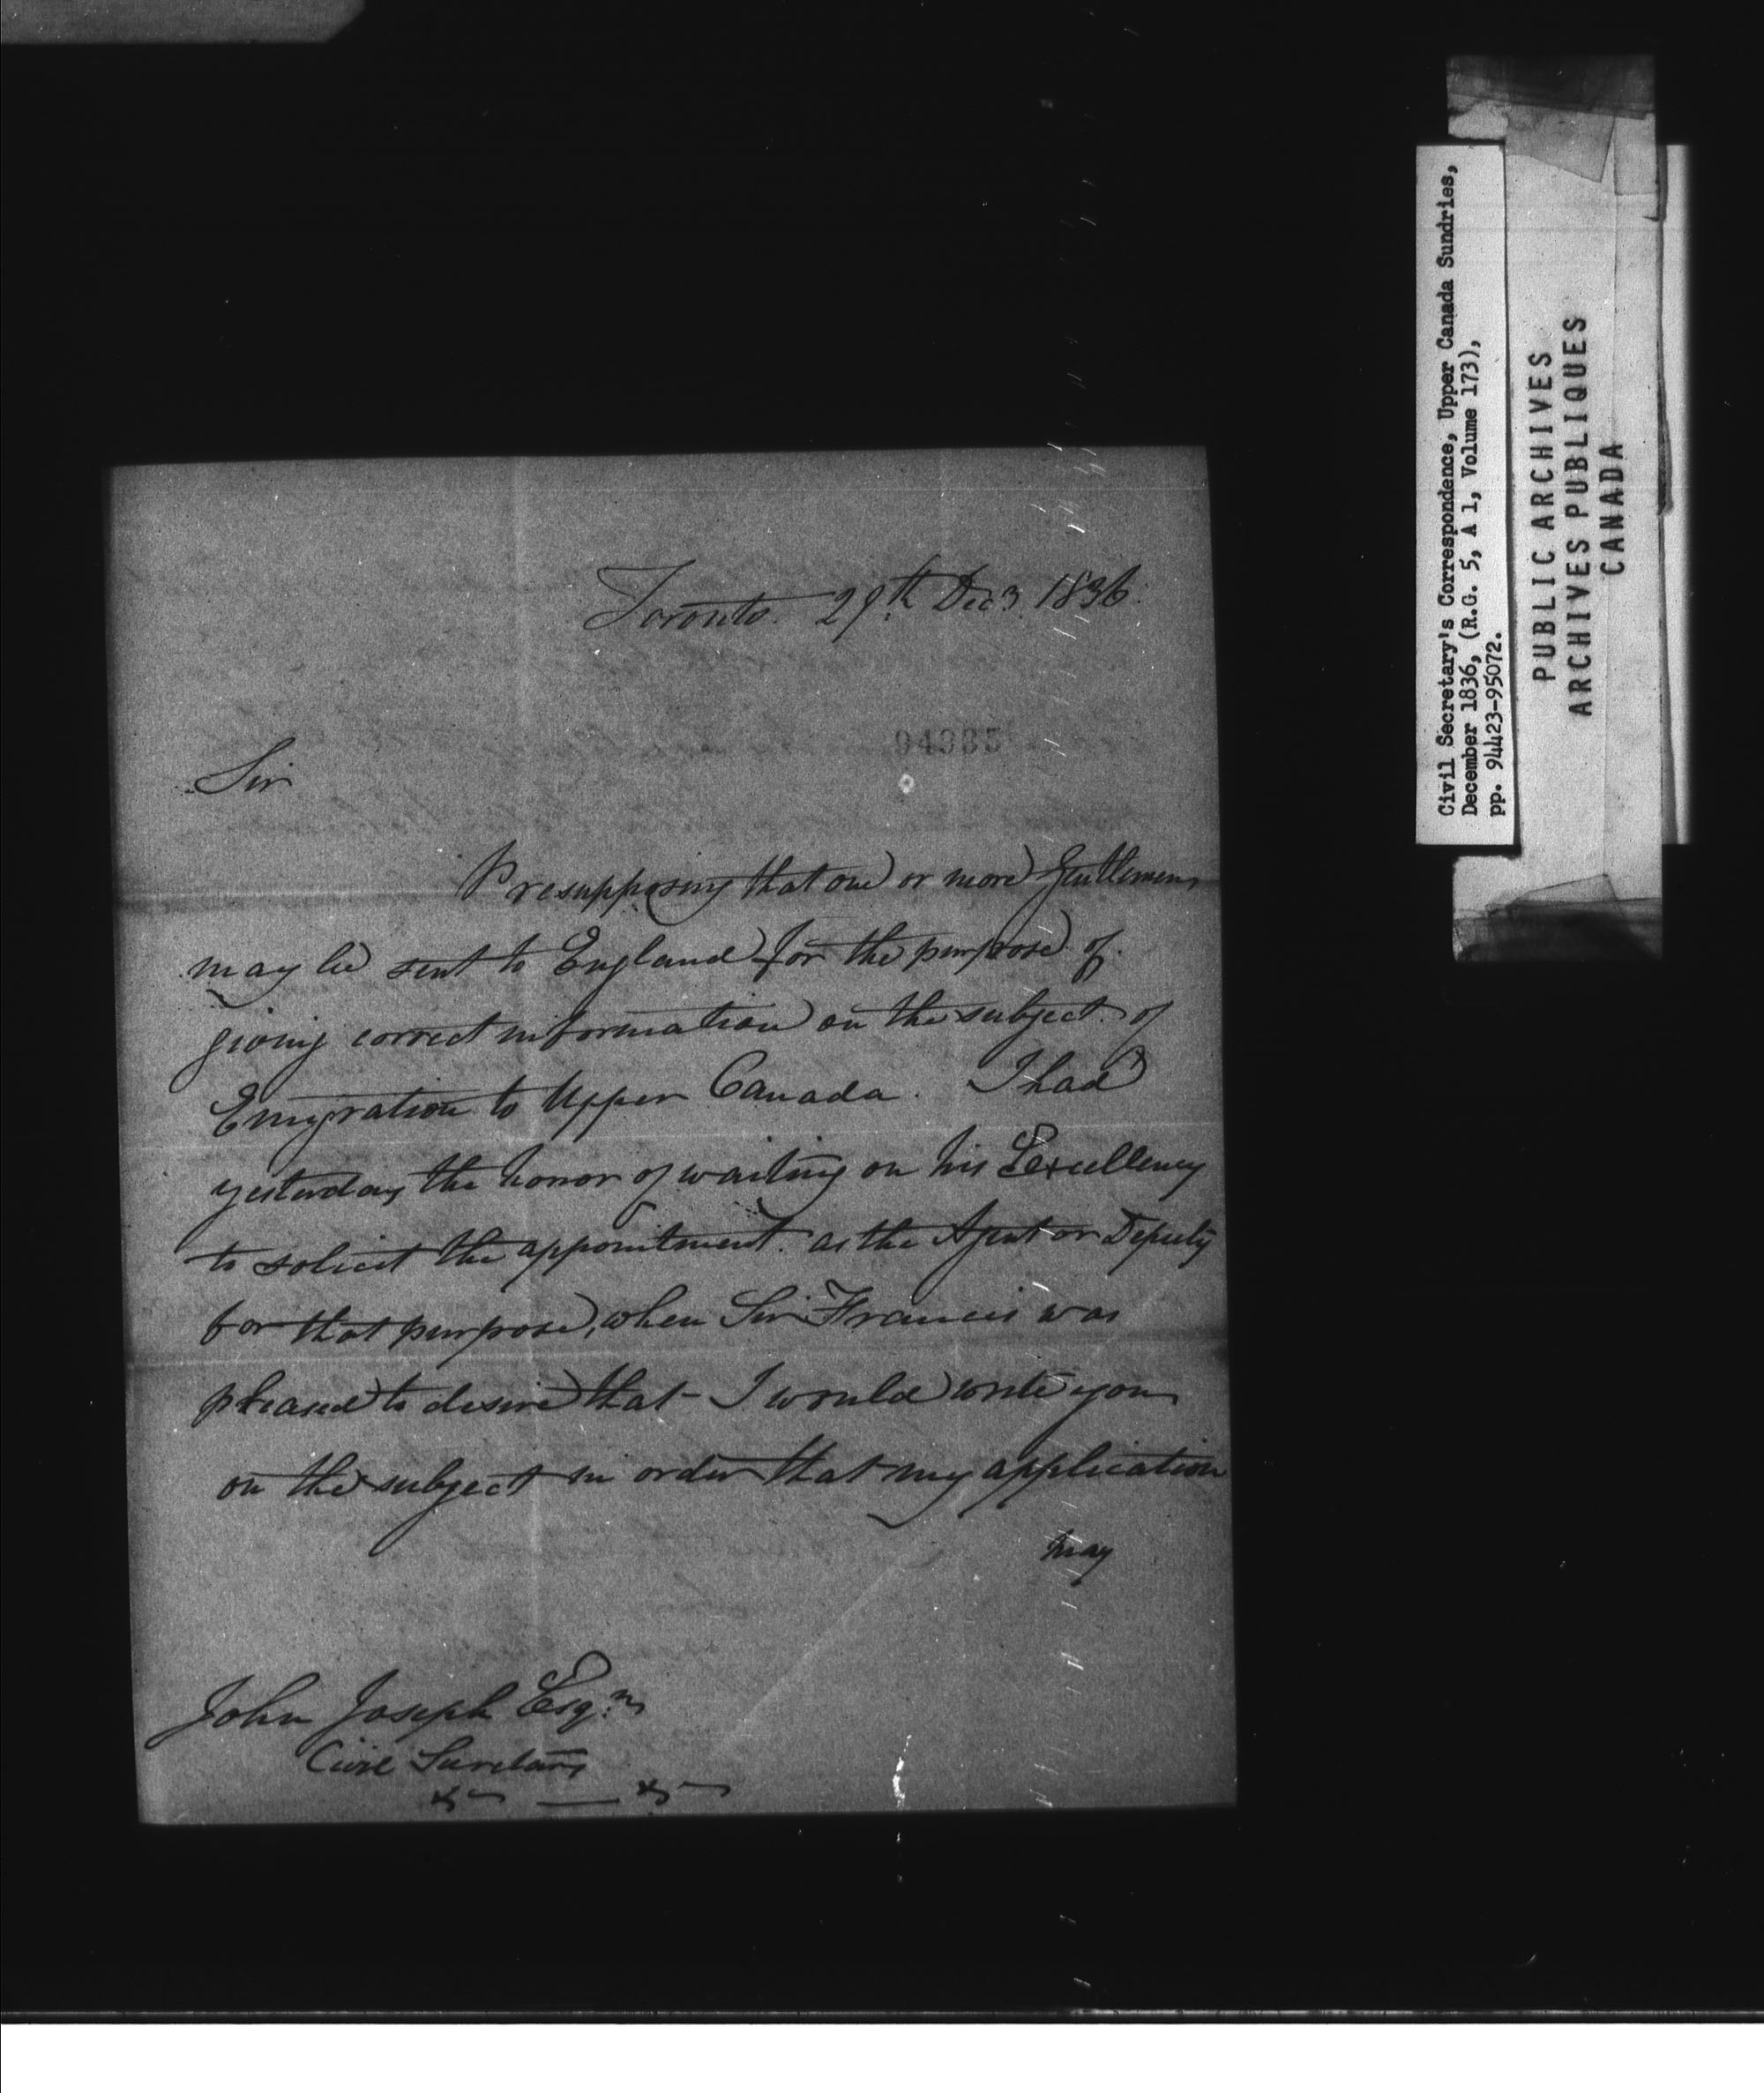 Toronto. 29th Decr. 1836.
Sir
Presupposing that one or more Gentlemen
may be sent to England for the purpose of
giving correct information on the subject of
Emigration to Upper Canada. I had
yesterday the honor of waiting on his Excellency
to solicit the appointment as the Agent or Deputy
for that purpose, when Sir Francis was
pleased to desire that I would write you
on the subject in order that my application
may
John Joseph Esqr.
Civil Secretary
&c — &c
Civil Secretary's Correspondence, Upper Canada Sundries,
December 1836, (R.G. 5, A 1, Volume 173),
pp. 94423-95072.
PUBLIC ARCHIVES
ARCHIVES PUBLIQUES
CANADA